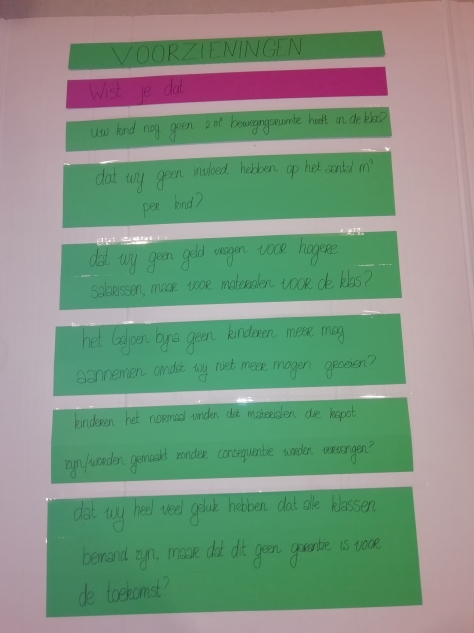 VOORZIENINGEN
Wist je dat
uw kind nog geen 2 m² bewegingsruimte heeft in de klas?
dat wij geen invloed hebben op het aantal m²
per kind?
dat wij geen geld vragen voor hogere
salarissen, maar voor materialen voor de klas?
het Galjoen bijna geen kinderen meer mag
aannemen omdat wij niet meer mogen groeien?
kinderen het normaal vinden dat materialen die kapot
zijn/worden gemaakt zonder consequentie worden vervangen?
dat wij heel veel geluk hebben dat alle klassen
bemand zijn, maar dat dit geen garantie is voor
de toekomst?